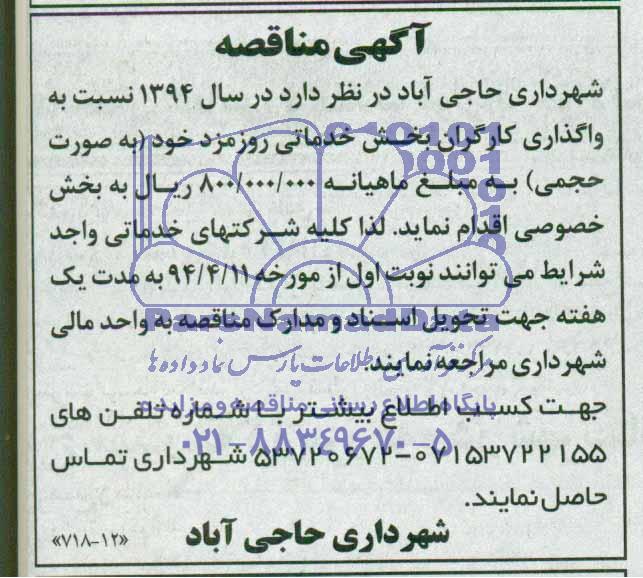 آگهی مناقصه
شهرداری حاجی آباد در نظر دارد در سال ۱۳۹۴ نسبت به
واگذاری کارگران بخش خدماتی روزمزد خود (به صورت
حجمی) به مبلغ ماهیانه ۸۰۰/۰۰۰/۰۰۰ ریال به بخش
خصوصی اقدام نماید. لذا کلیه شرکتهای خدماتی واجد
شرایط می توانند نوبت اول از مورخه ۹۴/۴/۱۱ به مدت یک
هفته جهت تحویل اسناد و مدارک مناقصه به واحد مالی
شهرداری مراجعه نمایند.
جهت کسب اطلاع بیشتر با شماره تلفن های
۰۷۱۵۳۷۲۲۱۵۵-۵۳۷۲۰۶۷۲ شهرداری تماس
حاصل نمایند.
شهرداری حاجی آباد
«۷۱۸-۱۲»
ParsNamadData
پایگاه اطلاع رسانی مناقصه و مزایده
۰۲۱-۸۸۳۴۹۶۷۰-۵